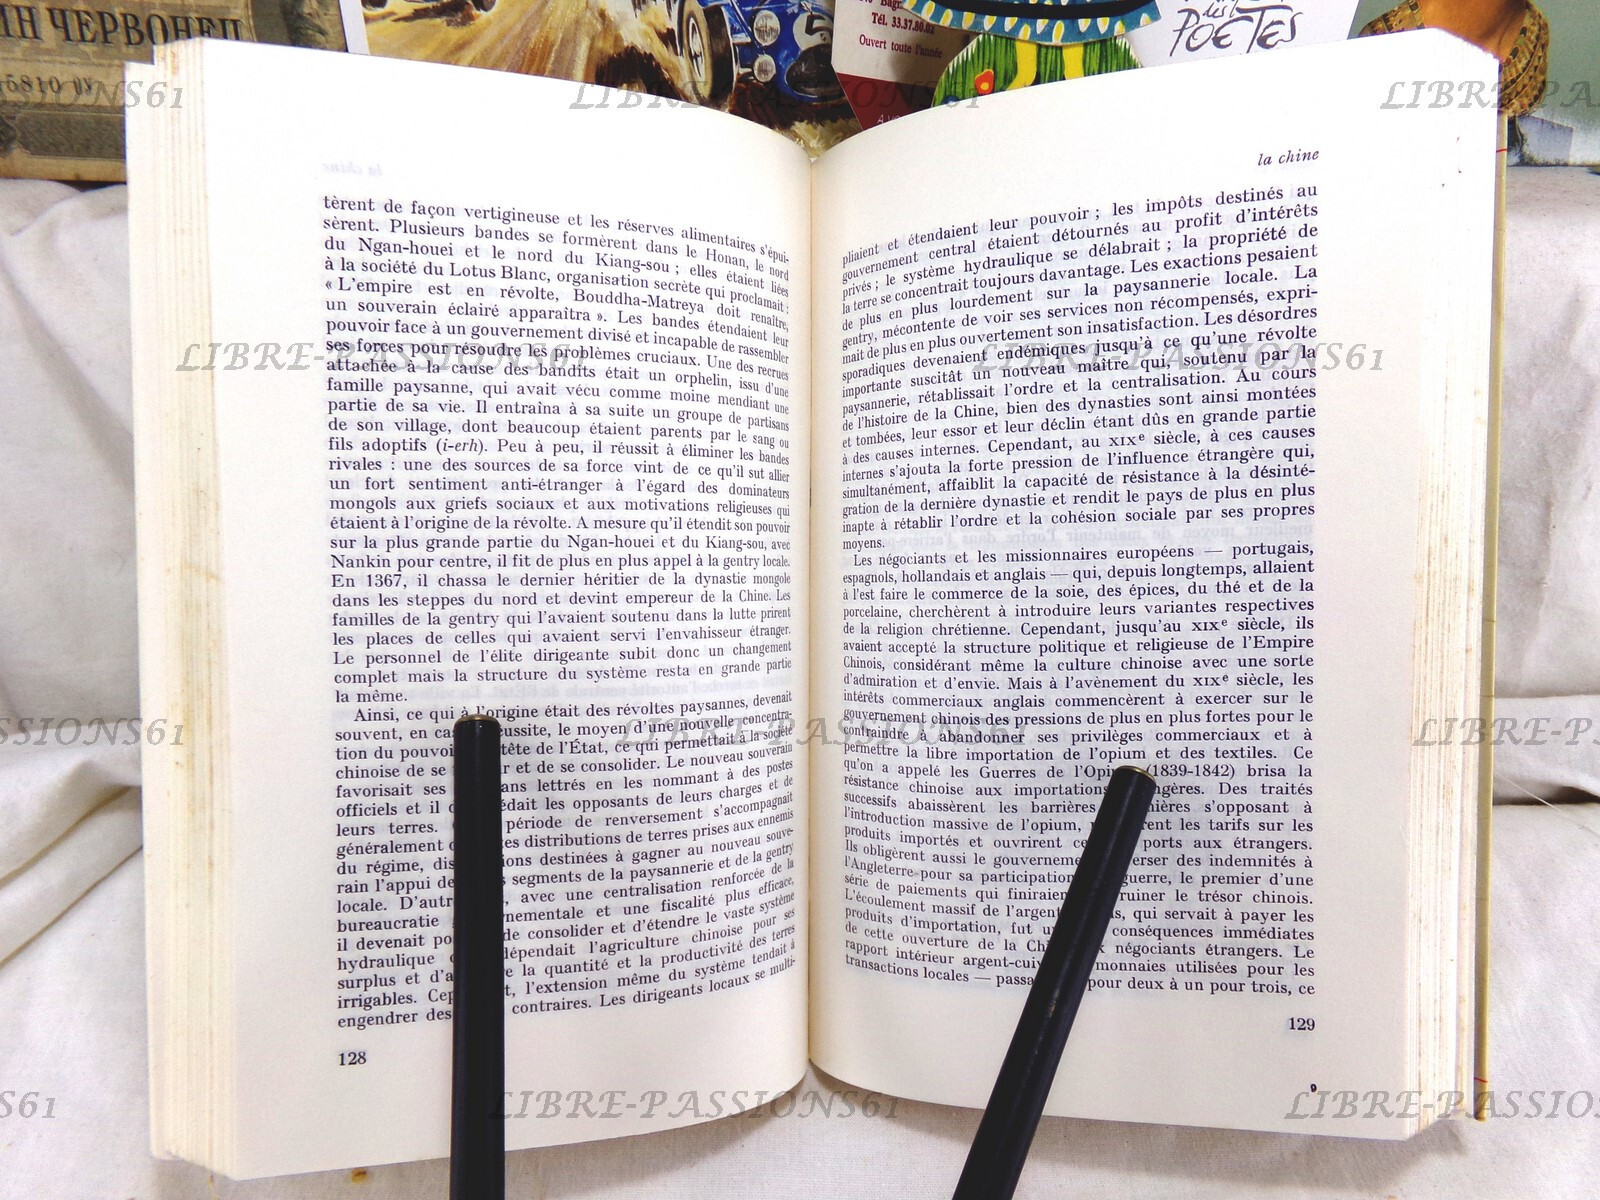 ИН ЧЕРВОНЕЦ
Tél. 33.37.80.02
Ouvert toute l'année
des
POETES
LIBRE-PASSIONS61
la chine
tèrent de façon vertigineuse et les réserves alimentaires s'épui-
sèrent. Plusieurs bandes se formèrent dans le Honan, le nord
du Ngan-houei et le nord du Kiang-sou ; elles étaient liées
à la société du Lotus Blanc, organisation secrète qui proclamait :
« L'empire est en révolte, Bouddha-Matreya doit renaître,
un souverain éclairé apparaîtra ». Les bandes étendaient leur
pouvoir face à un gouvernement divisé et incapable de rassembler
ses forces pour résoudre les problèmes cruciaux. Une des recrues
attachée à la cause des bandits était un orphelin, issu d'une
famille paysanne, qui avait vécu comme moine mendiant une
partie de sa vie. Il entraîna à sa suite un groupe de partisans
de son village, dont beaucoup étaient parents par le sang ou
fils adoptifs (i-erh). Peu à peu, il réussit à éliminer les bandes
rivales : une des sources de sa force vint de ce qu'il sut allier
un fort sentiment anti-étranger à l'égard des dominateurs
mongols aux griefs sociaux et aux motivations religieuses qui
étaient à l'origine de la révolte. A mesure qu'il étendit son pouvoir
sur la plus grande partie du Ngan-houei et du Kiang-sou, avec
Nankin pour centre, il fit de plus en plus appel à la gentry locale.
En 1367, il chassa le dernier héritier de la dynastie mongole
dans les steppes du nord et devint empereur de la Chine. Les
familles de la gentry qui l'avaient soutenu dans la lutte prirent
les places de celles qui avaient servi l'envahisseur étranger.
Le personnel de l'élite dirigeante subit donc un changement
complet mais la structure du système resta en grande partie
la même.
Ainsi, ce qui à l'origine était des révoltes paysannes, devenait
souvent, en cas réussite, le moyen d'une nouvelle concentra-
tion du pouvoir tête de l'État, ce qui permettait à la société
chinoise de se et de se consolider. Le nouveau souverain
favorisait ses lettrés en les nommant à des postes
officiels et il les opposants de leurs charges et de
leurs terres. période de renversement s'accompagnait
généralement distributions de terres prises aux ennemis
du régime, destinées à gagner au nouveau souve-
rain l'appui de segments de la paysannerie et de la gentry
locale. avec une centralisation renforcée de la
bureaucratie et une fiscalité plus efficace,
il devenait de consolider et d'étendre le vaste système
hydraulique dépendait l'agriculture chinoise pour ses
surplus et la quantité et la productivité des terres
irrigables. l'extension même du système tendait à
engendrer des contraires. Les dirigeants locaux se multi-
128
la chine
pliaient et étendaient leur pouvoir ; les impôts destinés au
gouvernement central étaient détournés au profit d'intérêts
privés ; le système hydraulique se délabrait ; la propriété de
la terre se concentrait toujours davantage. Les exactions pesaient
de plus en plus lourdement sur la paysannerie locale. La
gentry, mécontente de voir ses services non récompensés, expri-
mait de plus en plus ouvertement son insatisfaction. Les désordres
sporadiques devenaient endémiques jusqu'à ce qu'une révolte
importante suscitât un nouveau maître qui, soutenu par la
paysannerie, rétablissait l'ordre et la centralisation. Au cours
de l'histoire de la Chine, bien des dynasties sont ainsi montées
et tombées, leur essor et leur déclin étant dûs en grande partie
à des causes internes. Cependant, au XIXe siècle, à ces causes
internes s'ajouta la forte pression de l'influence étrangère qui,
simultanément, affaiblit la capacité de résistance à la désinté-
gration de la dernière dynastie et rendit le pays de plus en plus
inapte à rétablir l'ordre et la cohésion sociale par ses propres
moyens.
Les négociants et les missionnaires européens — portugais,
espagnols, hollandais et anglais — qui, depuis longtemps, allaient
à l'est faire le commerce de la soie, des épices, du thé et de la
porcelaine, cherchèrent à introduire leurs variantes respectives
de la religion chrétienne. Cependant, jusqu'au XIXe siècle, ils
avaient accepté la structure politique et religieuse de l'Empire
Chinois, considérant même la culture chinoise avec une sorte
d'admiration et d'envie. Mais à l'avènement du XIXe siècle, les
intérêts commerciaux anglais commencèrent à exercer sur le
gouvernement chinois des pressions de plus en plus fortes pour le
contraindre à abandonner ses privilèges commerciaux et à
permettre la libre importation de l'opium et des textiles. Ce
qu'on a appelé les Guerres de l'Opium (1839-1842) brisa la
résistance chinoise aux importations étrangères. Des traités
successifs abaissèrent les barrières s'opposant à
l'introduction massive de l'opium, les tarifs sur les
produits importés et ouvrirent ports aux étrangers.
Ils obligèrent aussi le gouvernement verser des indemnités à
l'Angleterre pour sa participation guerre, le premier d'une
série de paiements qui finiraient ruiner le trésor chinois.
L'écoulement massif de l'argent qui servait à payer les
produits d'importation, fut conséquences immédiates
de cette ouverture de la négociants étrangers. Le
rapport intérieur monnaies utilisées pour les
transactions locales — pour deux à un pour trois, ce
129
9